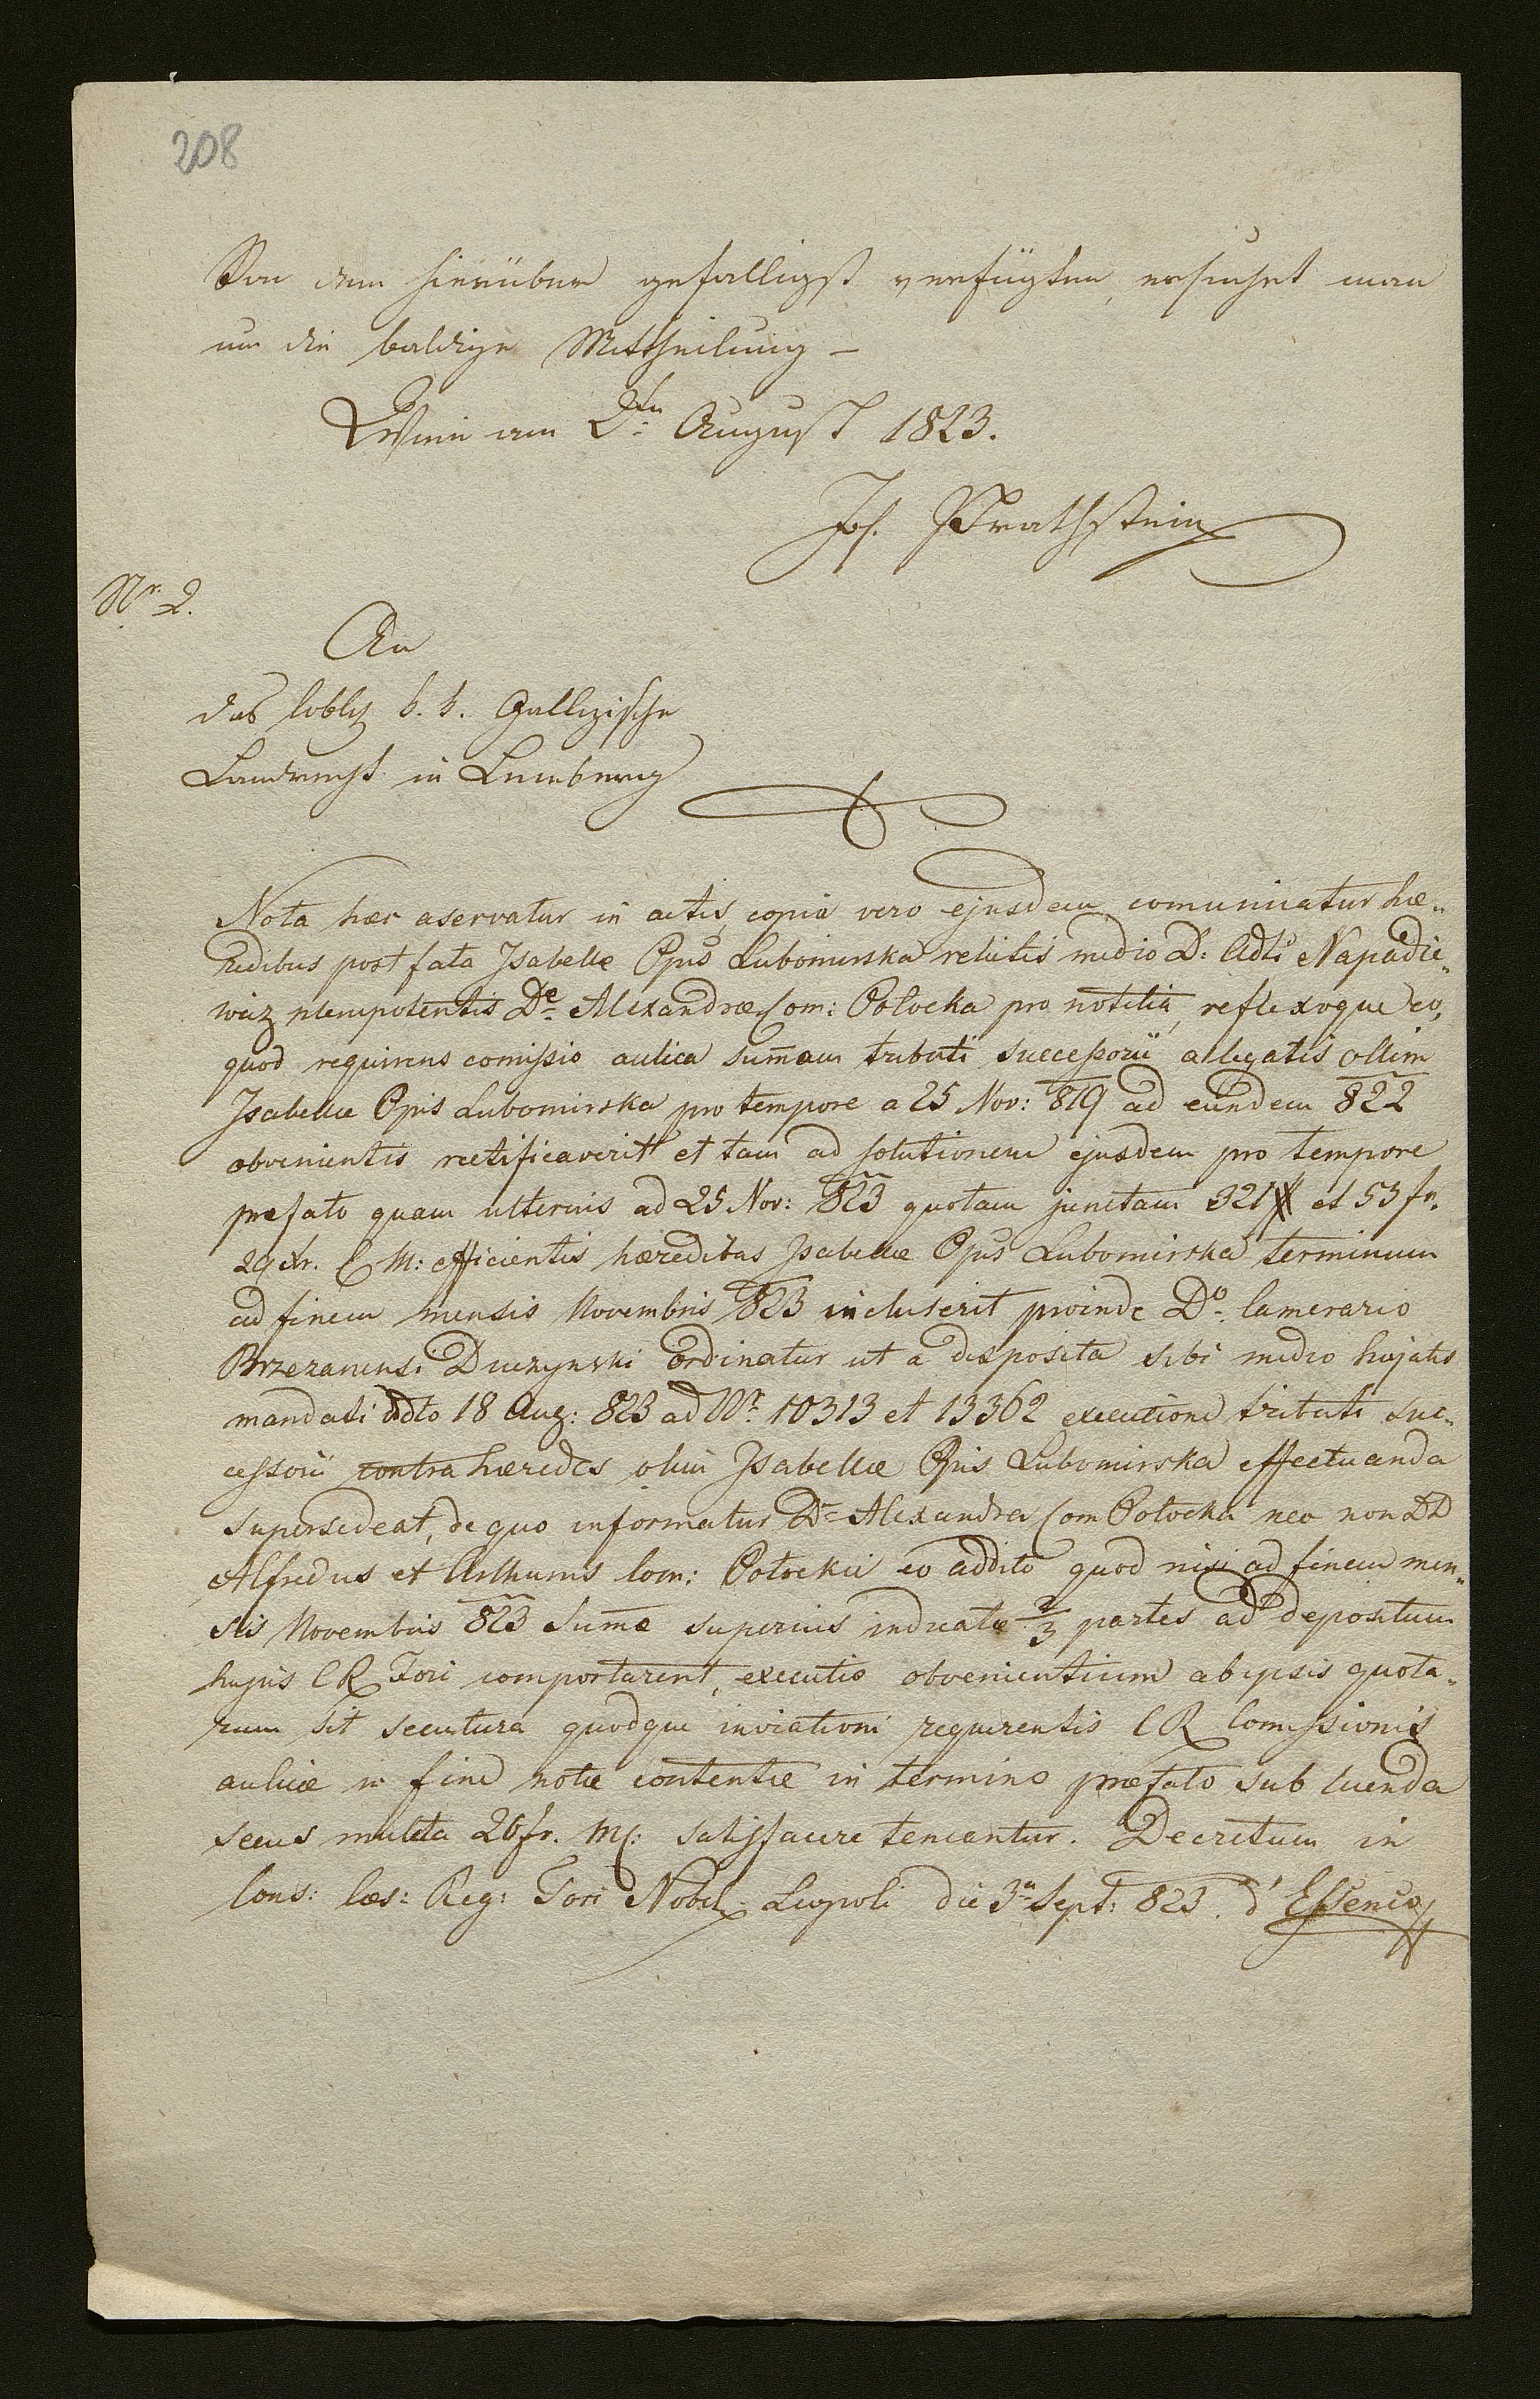 208
Von dem hierüber gefälligst verfügten, ersuchet man
um die baldige Mittheilung –
Wien am 2ten August 1823.
Jos. Prathstein
Nr. 2.
An
das löbliche k. k. Gallizische
Landrecht in Lemberg
Nota hæc aservatur in actis, copia vero ejusdem comunicatur hæ-
redibus post fata Isabellæ Ppis Lubomirska relictis medio D: Adti Napadie-
wicz plenipotentis Dae Alexandræ Com: Potocka pro notitia, reflexoque eo,
quod requirens comissio aulica sumam tributi successorii a legatis ollim
Isabellæ Ppis Lubomirska pro tempore a 25 Nov: 819 ad eundem 822
obvenientis rectificaverit et tam ad solutionem ejusdem pro tempore
præfato quam ulterius ad 25 Nov: 823 quotam junctam 321 # et 53 fr.
29 xr. C M: efficientis hæredibus Isabellæ Ppis Lubomirska terminum
ad finem mensis Novembris 823 incluserit proinde Do. Camerario
Brzezanensi Duczynski ordinatur ut a disposita sibi medio hujatis
mandati ddto 18 Aug: 823 ad Nr. 10313 et 13362 executione tributi suc-
cessorii contra hæredes olim Isabellæ Ppis Lubomirska effectuanda
supersedeat, de quo informatur Da Alexandra Com Potocka nec non DD
Alfredus et Arthurus Com: Potockii eo addito quod nisi ad finem men-
sis Novembris 823 sumæ superius indicatæ 2/3 partes ad depositum
hujus C R Fori comportarent, executio obvenientium ab ipsis quota-
rum sit secutura quodque inviationi requirentis C R Comissionis
aulicæ in fine notæ contentæ in termino præfato sub luenda
secus mulcta 20 fr. M C: satisfacere teneantur. Decretum in
Cons: Cæs: Reg: Fori Nobil. Leopoli die 3a Sept: 823. d' Essenco